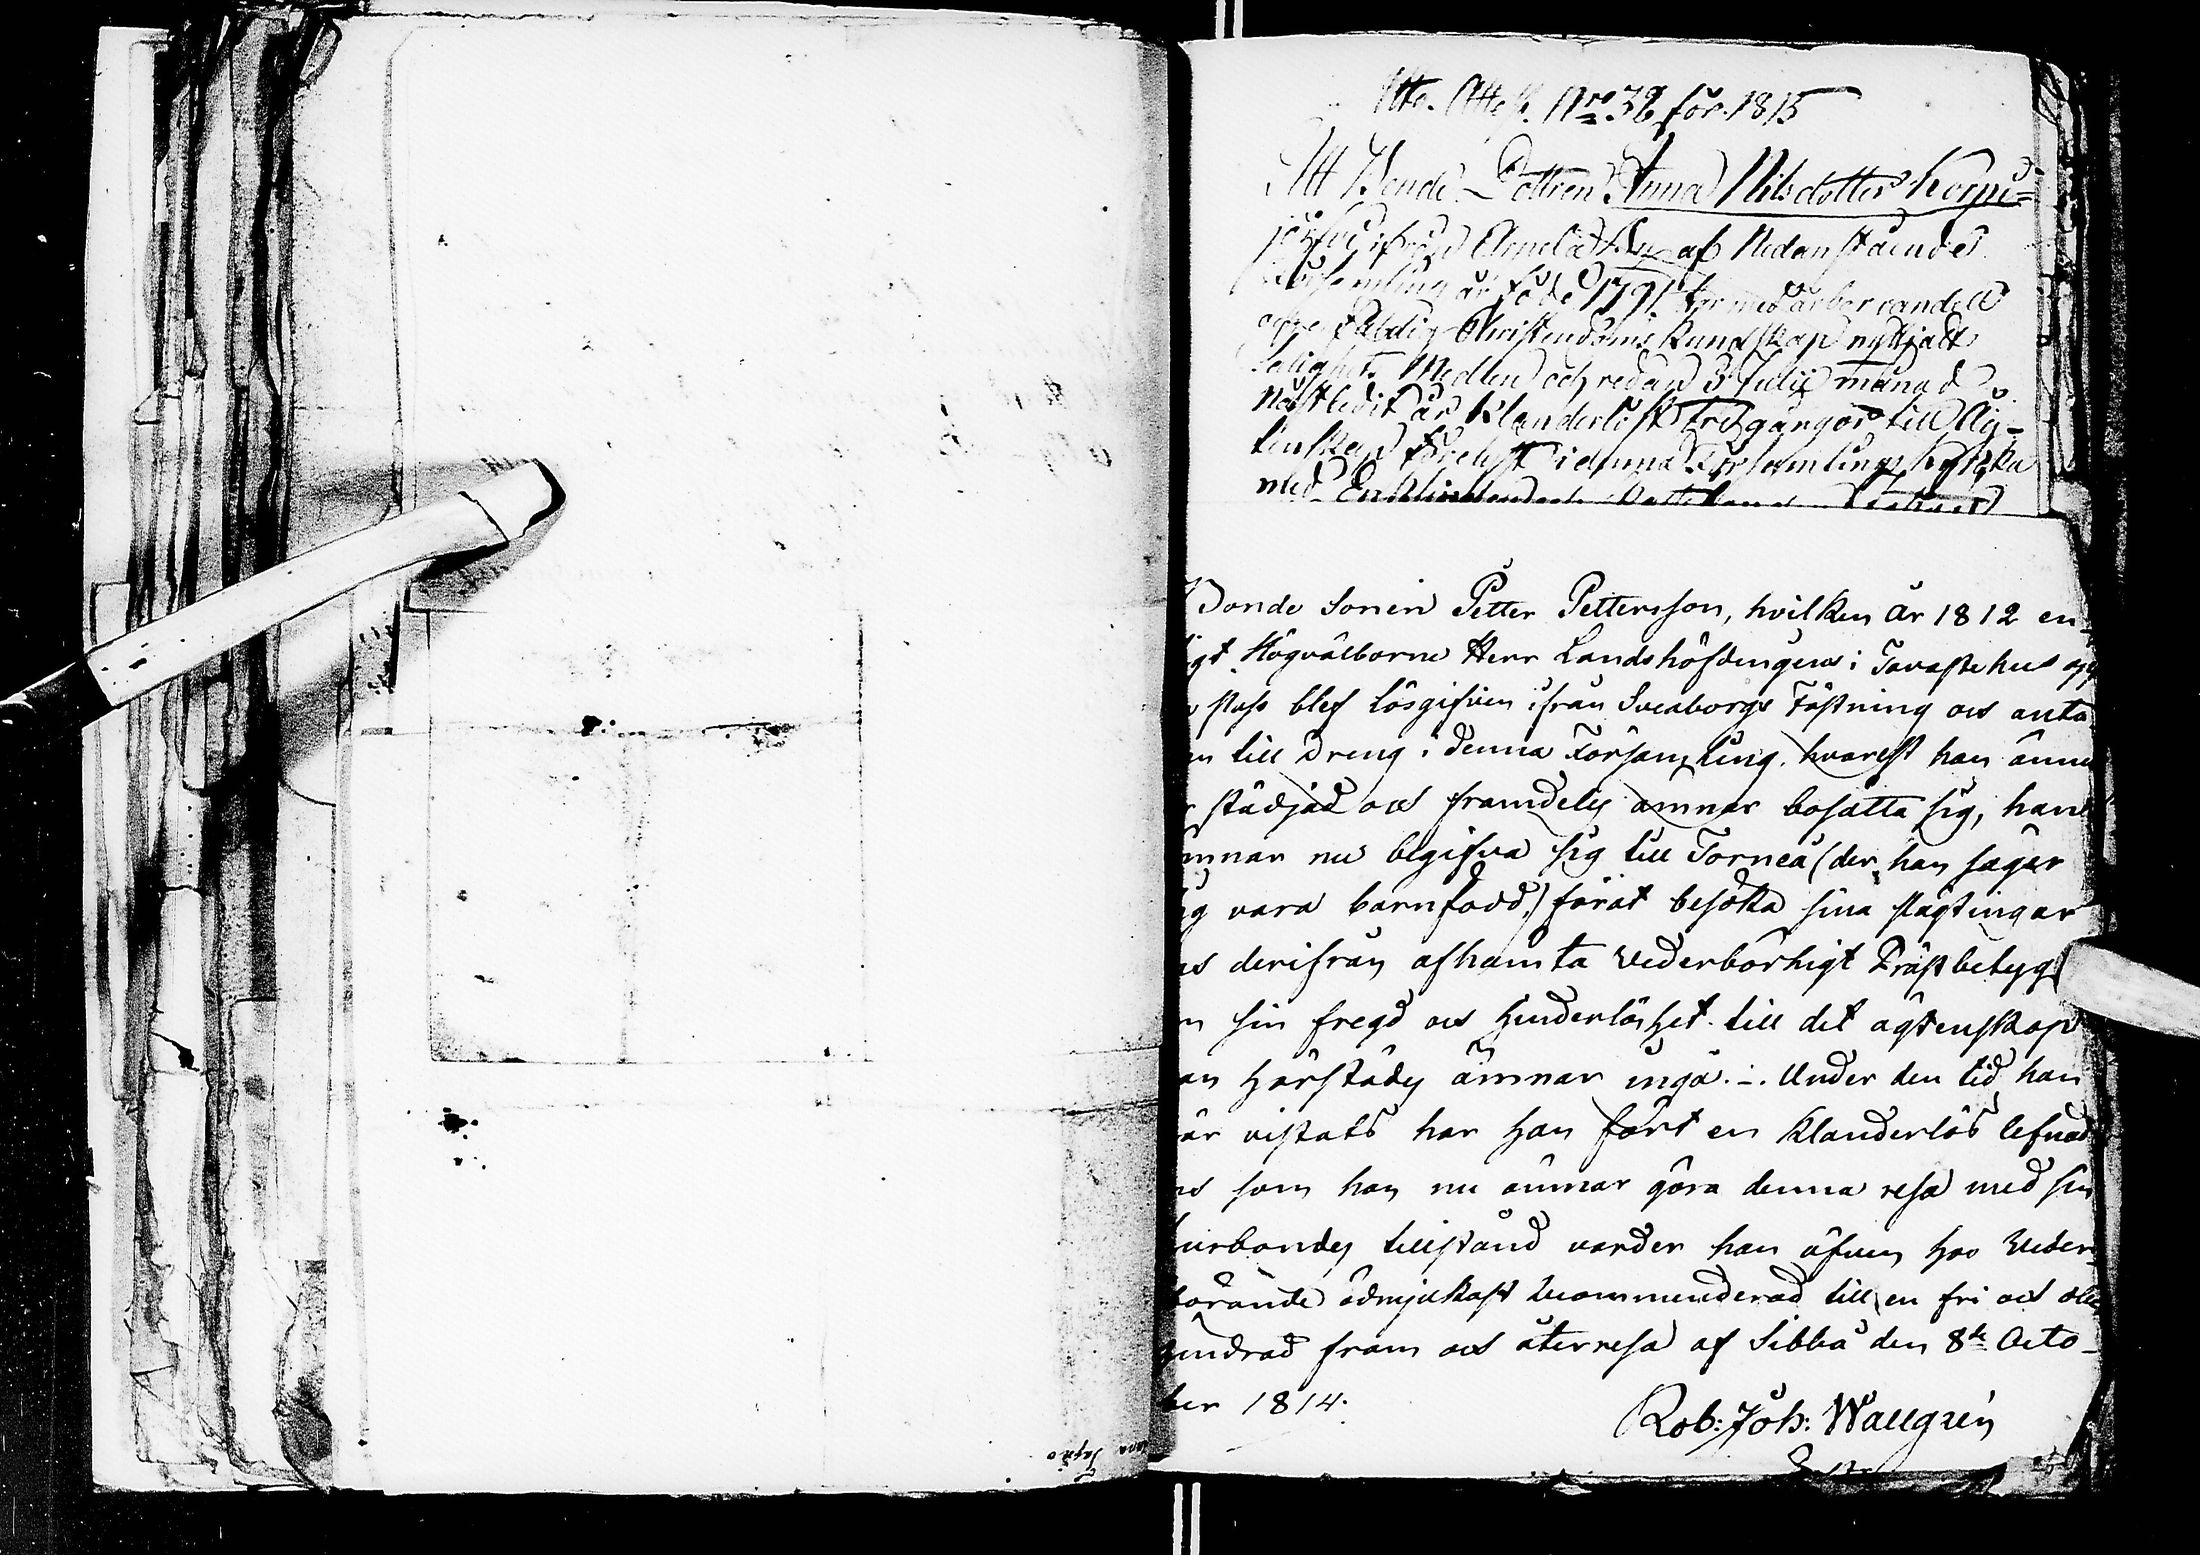 Att. Attest. Nro 38 för 1815
Att Bonde Dottren Anna Nilsdotter Korpi=
järfvi ifrån by af Nedanstående
Församling är född 1791 har med årborrande
Christendoms kundskap nyttjadt
Salighets Medlen och redan 3 Julii månad
Nästledit år klanderlöst tre gångor till Äg-
tenskap förelyst i denna Församlings kyrka
med
Bonde Sonen Petter Pettersson, hvilken År 1812 en-
igt Högvälborne Herr Landshöfdingens i Tavastehus
blef lösgifven ifrån Sveaborgs Fästning och anta
en till Dreng i denna Församling, hvarest han ännu
r städjad och framdeles ämnar bosätta sig, han
ämnar nu begifva sig till Torneå (der han säger
ig vara barnfödd,) föråt besöka sina slägtingar
as derifrån afhämta vederbörligt Prästbetyg
m sin fregd och hinderlöshet till det ägtenskap
an härstädes ämnar ingå. –. Under den tid han
är vistats har han fört en klanderlös lefnad
as som han nu ämnar göra denna resa med sin
husbondes tillstånd varder han äfven hos Veder-
börande ödmjukast recommenderad till en fri och obe
hindrad fram och återresa af Sibbå den 8de Octo-
ber 1814.
Rob: Joh: Wallgrén